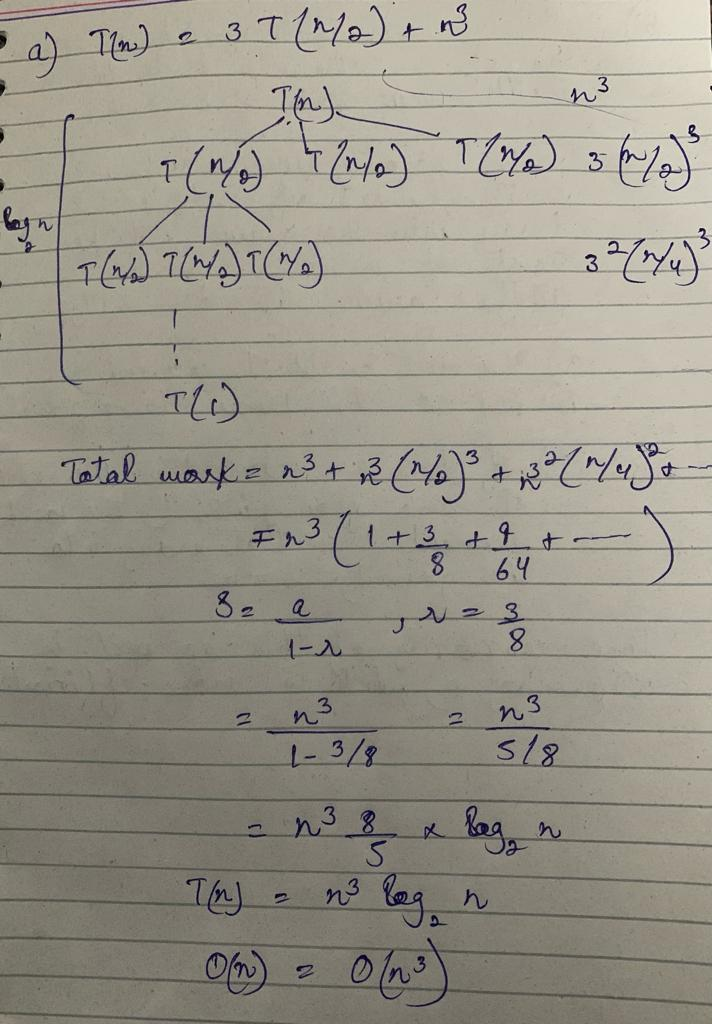 a) T(n) = 3 T(n/2) + n³
T(n) n³
T(n/2) T(n/2) T(n/2) 3 (n/2)³
log₂ n
T(n/2) T(n/2) T(n/2) 3² (n/4)³
T(1)
Total work = n³ + 3 (n/2)³ + 3² (n/4)² + ---
= n³ ( 1 + 3/8 + 9/64 + --- )
S = a/(1-r) , r = 3/8
= n³/(1-3/8) = n³/(5/8)
= n³ 8/5 × log₂ n
T(n) = n³ log₂ n
O(n) = O(n³)